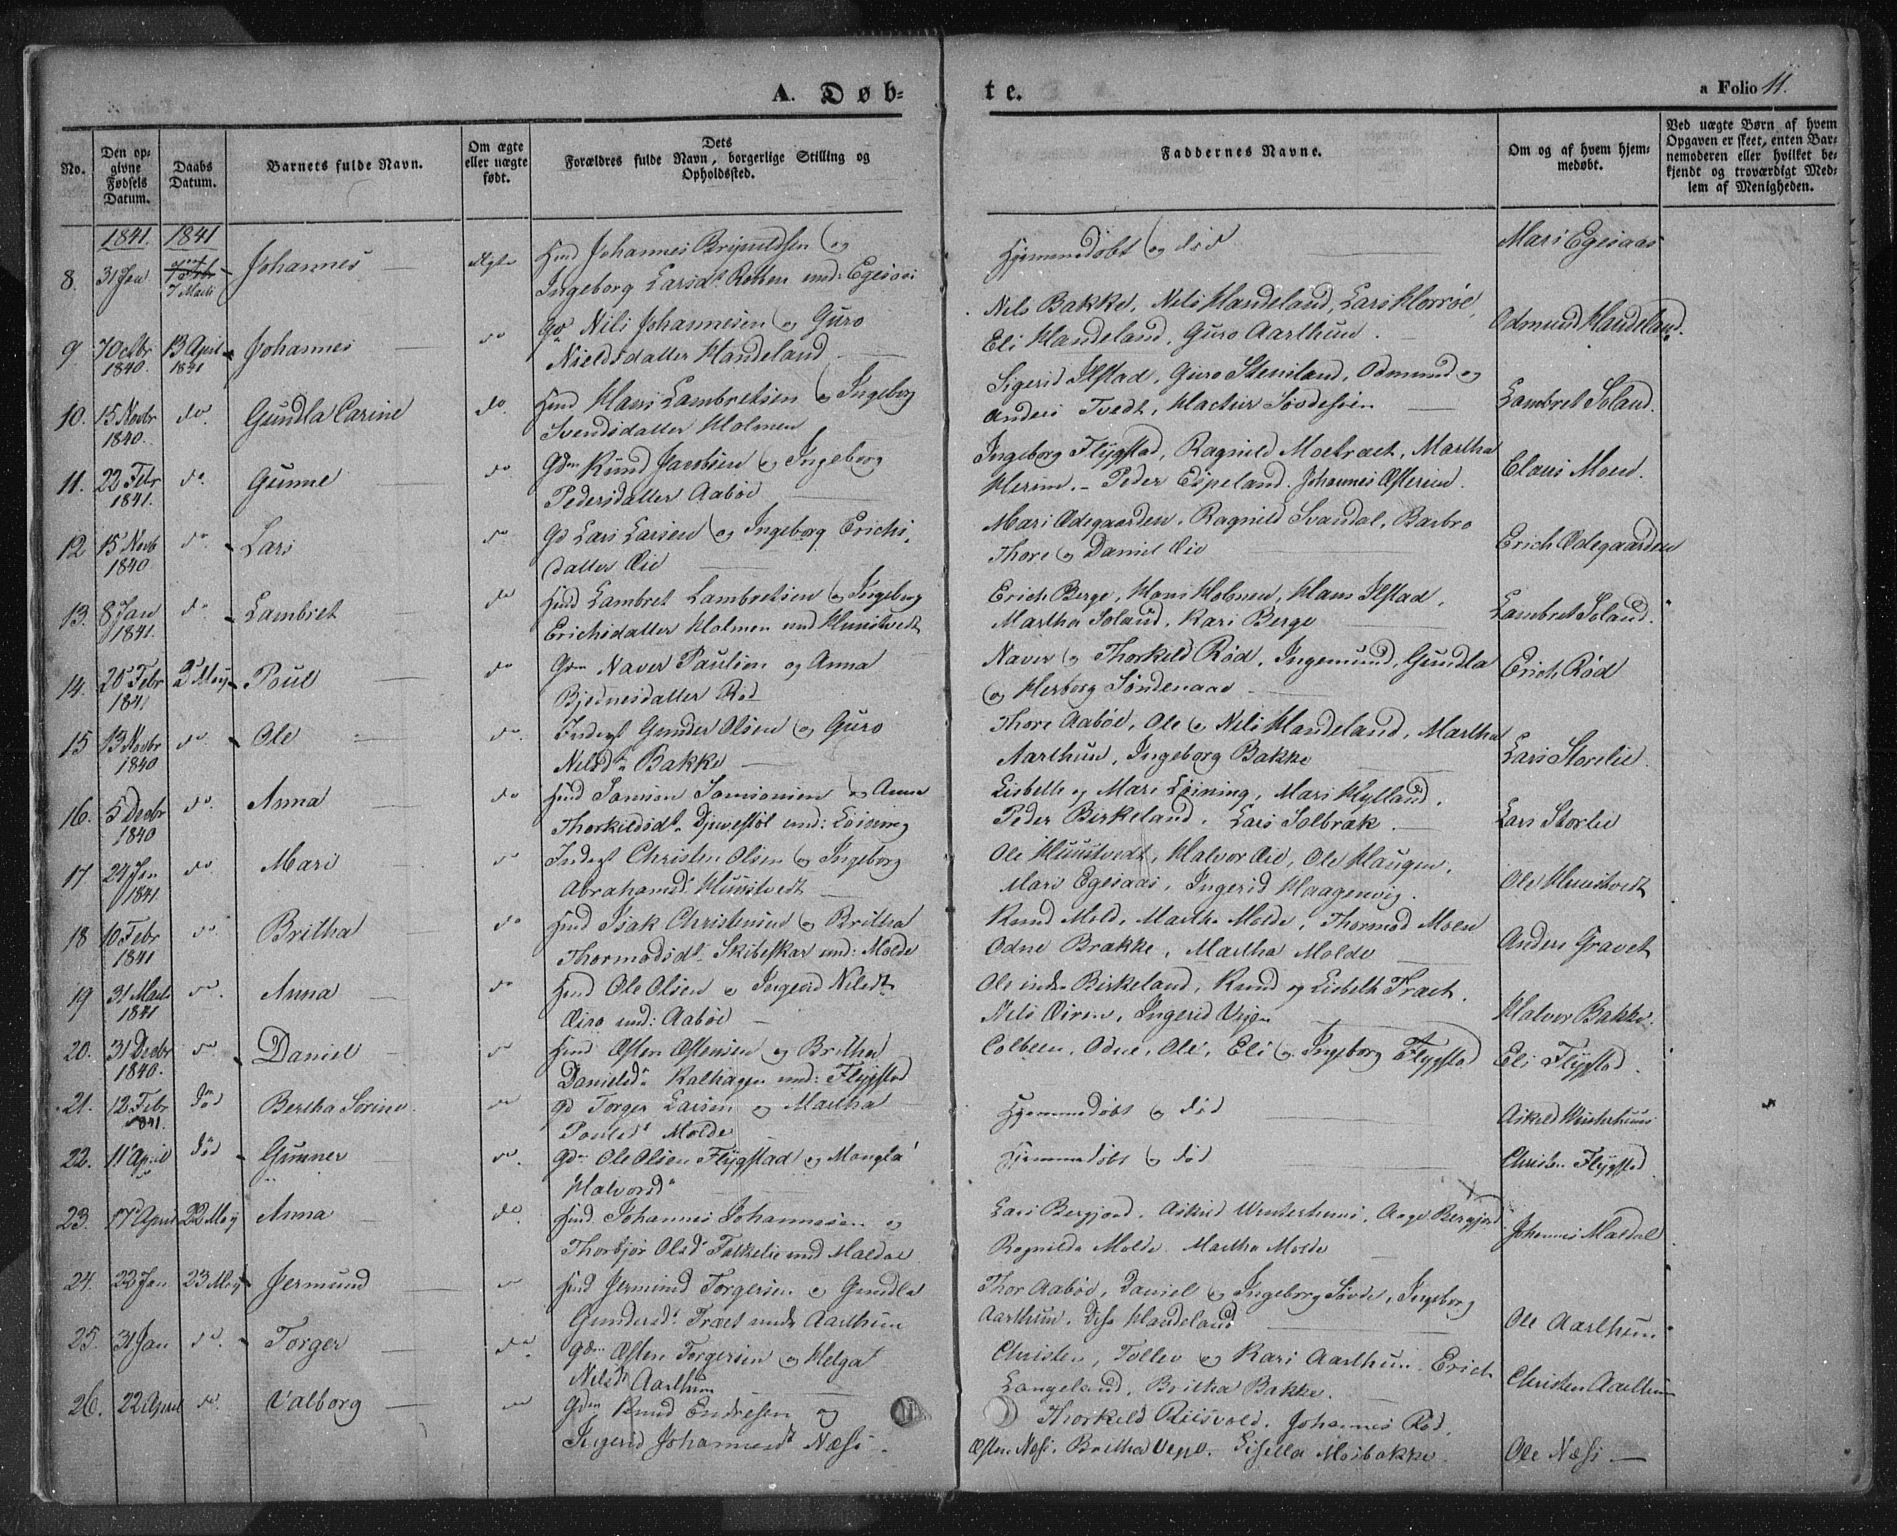 A. Døb=
te.
a Folio 11.
No.
Den op-
givne
Fødsels
Datum.
Daabs
Datum.
Barnets fulde Navn.
Om ægte
eller uægte
født.
Dets
Forældres fulde Navn, borgerlige Stilling og
Opholdssted.
Faddernes Navne.
Om og af hvem hjem-
medøbt.
Ved uægte Børn af hvem
Opgaven er skeet, enten Bar-
nemoderen eller hvilket be-
kjendt og troværdigt Med-
lem af Menigheden.
1841. 1841
8. 31 Jan 7 Marts Johannes Ægte Hmd Johannes og
Ingeborg Larsdt. und: Egesaas
Hjemmedøbt og død
Mari Egesaas
9 7 Octbr 1840. 13 April 1841 Johannes do Gd Nils Johannesen og Guro
Nielsdatter Handeland
Nils Bakke, Nils Handeland, Lars
Eli Handeland, Guro Aarthun
Odmund Handeland.
10. 15 Novbr 1840. do. Gundla Carine do. Hmd Hans Lambretsen og Ingeborg
Svendsdatter Holmen
Sigerid Ilstad, Guro Stensland, Odmund og
Anders Tvedt,
Lambret Soland.
11. 22 Febr 1841. do. Gunne do Gdm Knud Jacobsen og Ingeborg
Pedersdatter Aabøe
Ingeborg Flygstad, Ragnild Moetræet, Martha
Herim. - Peder Espeland. Johannes
Claus Moen.
12 15 Novb 1840 do. Lars do Gd Lars Larsen og Ingeborg Erichs-
datter Øie
Mari Ødegaarden, Ragnild Svandal, Barbro
Thore og Daniel Øie
Erich Ødegaarden
13. 8 Jan 1841. do Lambret do Hmd Lambret Lambretsen og Ingeborg
Erichsdatter Holmen und Hunstvedt
Erich Berge, Hans Holmen, Hans Ilstad,
Martha Soland, Kari Berge
Lambret Soland.
14. 20 Febr 1841 2 May Poul do Gdm Naver Paulsen og Anna
Bjednesdatter Rød
Naver og Thorkild Rød, Ingemund, Gundla
og Herborg Søndenaae
Erich Rød
15 13 Novbr 1840 do. Ole do. Inderst Gunder Olsen og Guro
Nilsdt. Bakke
Thore Aabøe, Ole og Nils Handeland, Martha
Aarthun, Ingeborg Bakke
Lars Storlie.
16. 5 Decbr 1840 do. Anna do Hmd Samson Samsonsen og Anna
Thorkildsdt. Djuvestøl und: Løining
Lisbette og Mari Løining, Mari Hylland,
Peder Birkeland. Lars Solbræk.
Lars Storlie
17 24 Jan 1841 do. Mari do Inderst Christen Olsen og Ingeborg
Abrahamsdt. Hunstvedt
Ole Hunstvedt, Halvor Øie, Ole Haugen,
Mari Egesaas, Ingerid Haagenvig.
Ole Hunstvedt
18 10 Febr 1841 do. Britha do Hmd Isak Christensen og Britha
Thormodsdt. Skibeskar und: Molde
Knud Molde, Martha Molde, Thormod Moen
Odne Brække, Martha Molde
Anders Gravet
19 31 Marts 1841 do. Anna do Hmd Ole Olsen og Ingerid Nilsdt.
und: Aabøe
Ole Birkeland, Knud og Lisbeth Træet.
Nils Ingerid
Halvor Bakke.
20. 31 Decbr 1840. do Daniel do Hmd Østen Østensen og Britha
Danielsdt. Kalhagen und: Flygstad
Colbeen, Odne, Ole, Eli og Ingeborg Flygstad
Eli Flygstad.
21. 12 Febr 1841. død Bertha Sorine. do Gd Torger Larsen og Martha
Poulsdt Molde
Hjemmedøbt og død
Askild Winterhuus
22. 11 April død Gunner do. Gdm Ole Olsen Flygstad og Mangla
Halvorsdt.
Hjemmedøbt og død
Christen Flygstad
23. 17 April 22 May Anna do. Hmd. Johannes Johannesen og
Thorbjør Olsdt Falkelie und Maldal
Lars Bergjord. Askild Winterhuus, Aage Bergjord
Ragnilda Molde. Martha Molde
Johannes Maldal
24. 22 Jan 23 May Jermund do Hmd Jermund Torgersen og Gundla
Gundersdt. Træet under Aarthun
Thor Aabøe, Daniel og Ingeborg Søvde, Ingeborg
Aarthun, Handeland
Ole Aarthun
25. 31 Jan do. Torger do. Gdm Østen Torgersen og Helga
Nilsdt Aarthun
Christen, Tollev og Kari Aarthun. Erich
Langeland, Britha Bakke.
Christen Aarthun
26. 22 April do. Valborg do Gdm Knud Endresen og
Ingerid Johannesdt Næss.
Thorkild Riisvold. Johannes Rød.
Østen Næss. Britha Gisella Moibakke.
Ole Næss